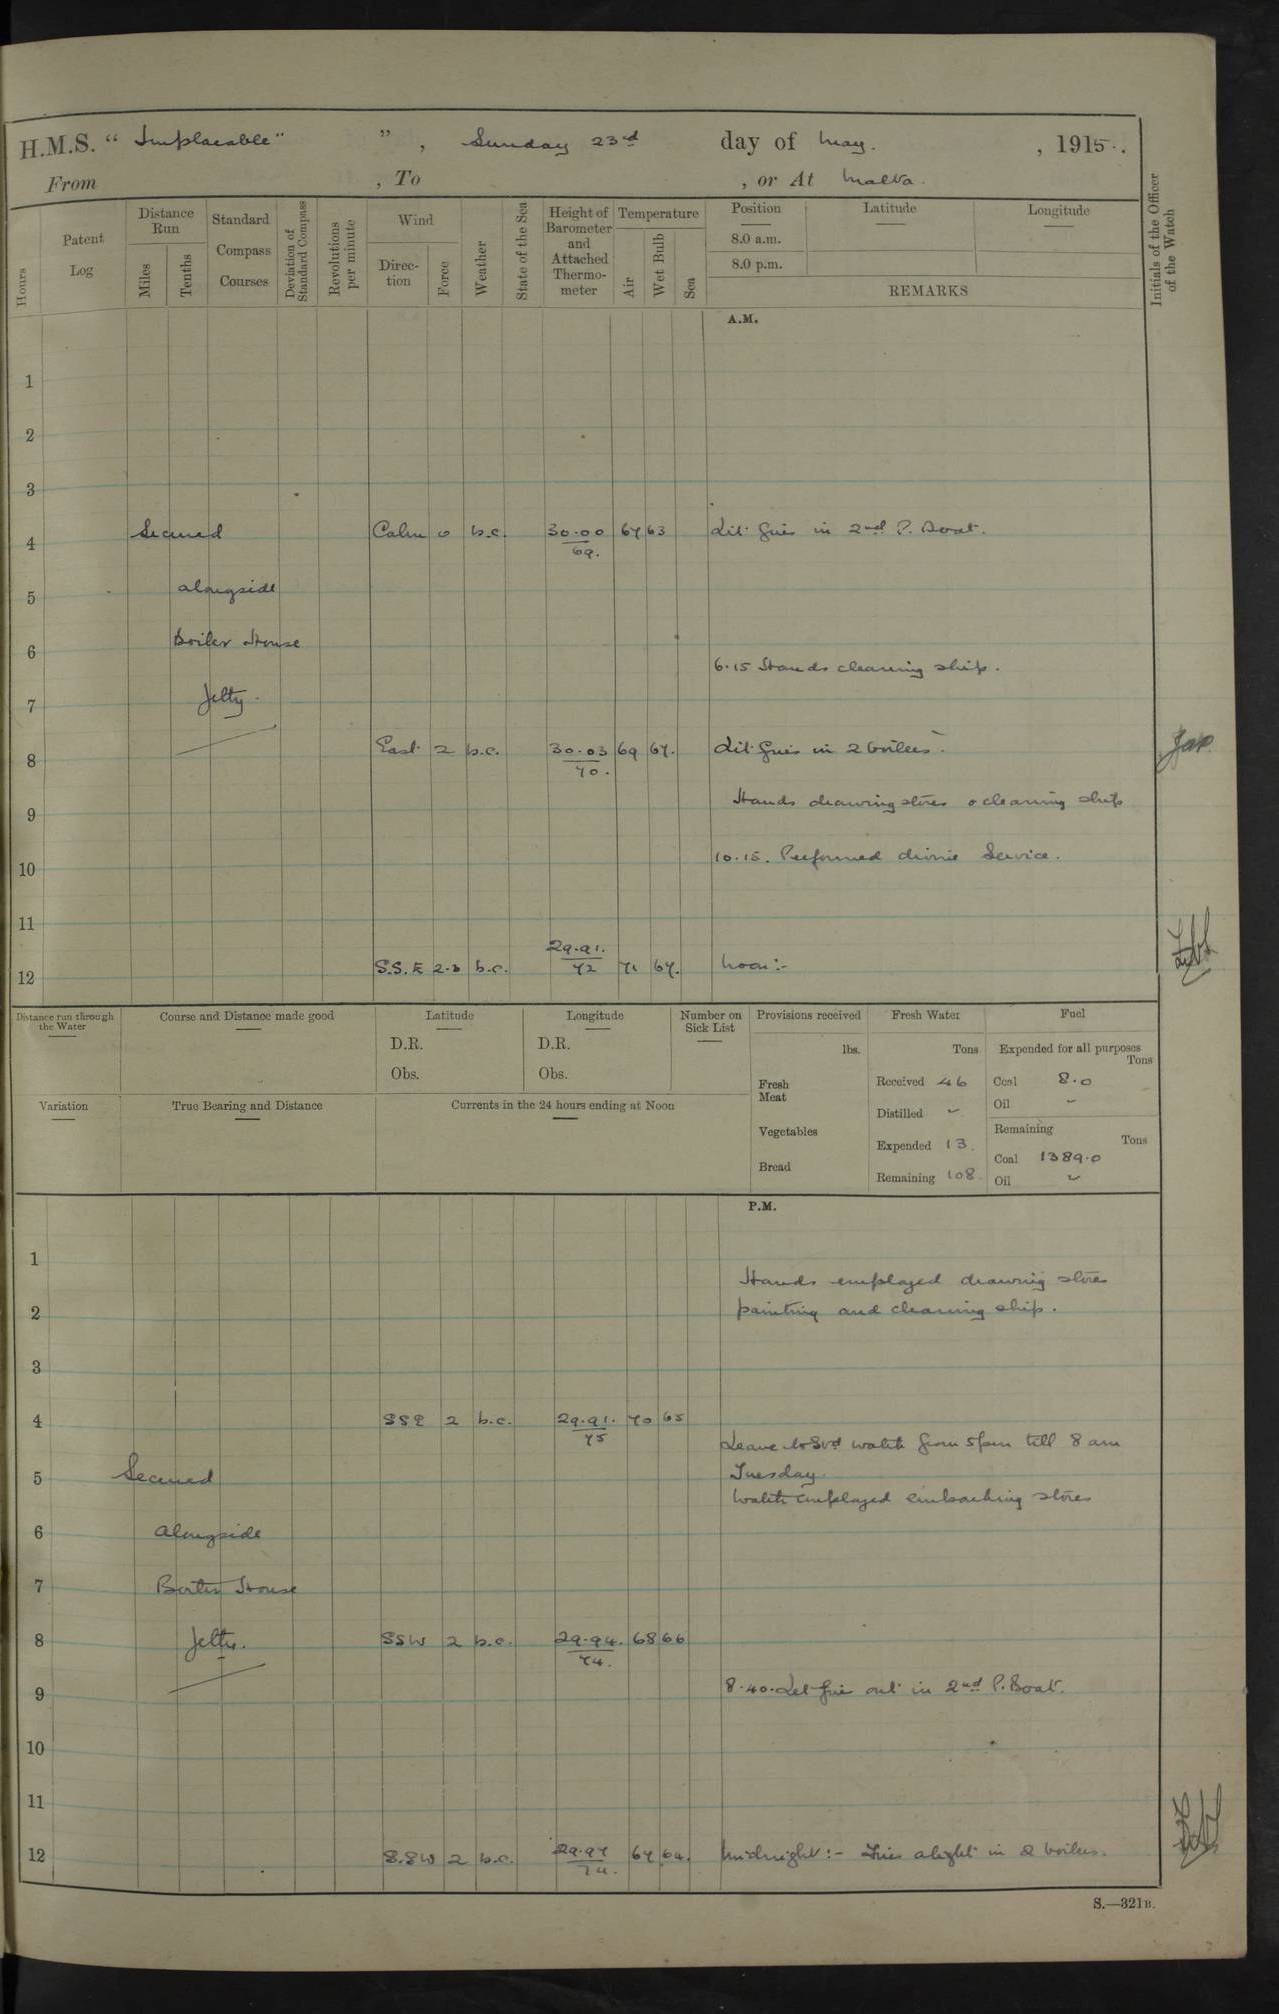 H.M.S. " Implacable " ", Sunday 23rd day of May. , 1915.
From , To , or At Malta.
Hours
Patent Log
Distance Run
Miles
Tenths
Standard Compass Courses
Deviation of Standard Compass
Revolutions per minute
Wind
Direction
Force
Weather
State of the Sea
Height of Barometer and Attached Thermometer
Temperature
Air
Wet Bulb
Sea
Position Latitude Longitude
8.0 a.m.
8.0 p.m.
REMARKS
Initials of the Officer of the Watch
A.M.
1
2
3
4 Secured Calm 0 b.c. 30.00 67 63 Lit fires in 2nd P. Boat.
69.
5 alongside
6 Boiler House
6.15 Hands cleaning ship.
7 Jetty.
8 East 2 b.c. 30.03 69 67. Lit fires in 2 boilers.
70.
9 Hands drawing stores & cleaning ship
10 10.15. Performed divine Service.
11
12 S.S.E 2.3 b.c. 29.91. 71 67. Noon:-
72
Distance run through the Water
Course and Distance made good
Latitude
D.R.
Obs.
Longitude
D.R.
Obs.
Number on Sick List
Provisions received
lbs.
Fresh Meat
Vegetables
Bread
Fresh Water
Tons
Received 46
Distilled ~
Expended 13.
Remaining 108.
Fuel
Expended for all purposes
Tons
Coal 8.0
Oil ~
Remaining
Tons
Coal 1389.0
Oil ~
Variation
True Bearing and Distance
Currents in the 24 hours ending at Noon
P.M.
1
Hands employed drawing stores
2 painting and cleaning ship.
3
4 SSE 2 b.c. 29.91. 70 65
75
Leave to Stvd watch from 5pm till 8 am
5 Secured Tuesday.
Watch employed embarking stores
6 alongside
7 Boiler House
8 Jetty. SSW 2 b.c. 29.94. 68 66
74.
9 8.40. Let fire out in 2nd P. Boat.
10
11
12 S.SW 2 b.c. 29.97 67 64. Midnight:- Fires alight in 2 boilers.
74.
S.—321B.